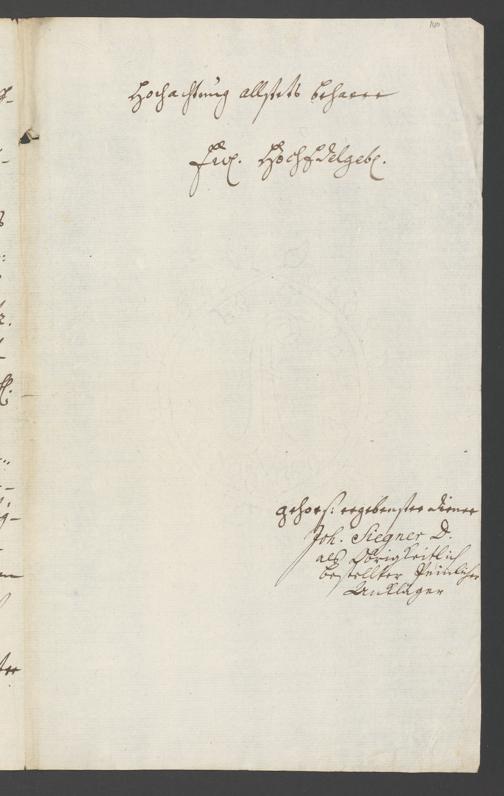 Hochachtung allstets beharre
Ew. HochEdelgeb.
gehors: ergebenster diener
Joh. Siegner D.
als Obrigkeitlich
bestellter Peinlicher
Ankläger